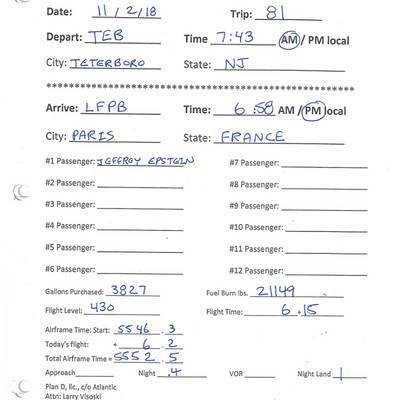 Date: 11/2/18 Trip: 81
Depart: TEB Time 7:43 AM / PM local
City: TETERBORO State: NJ
****************************************************
Arrive: LFPB Time: 6:58 AM / PM local
City: PARIS State: FRANCE
#1 Passenger: JEFFREY EPSTEIN #7 Passenger:
#2 Passenger: #8 Passenger:
#3 Passenger: #9 Passenger:
#4 Passenger: #10 Passenger:
#5 Passenger: #11 Passenger:
#6 Passenger: #12 Passenger:
Gallons Purchased: 3827 Fuel Burn lbs. 21149
Flight Level: 430 Flight Time: 6+15
Airframe Time: Start: 5546.3
Today's flight: + 6.2
Total Airframe Time = 5552.5
Approach Night .4 VOR Night Land 1
Plan D, llc., c/o Atlantic
Attn: Larry Visoski